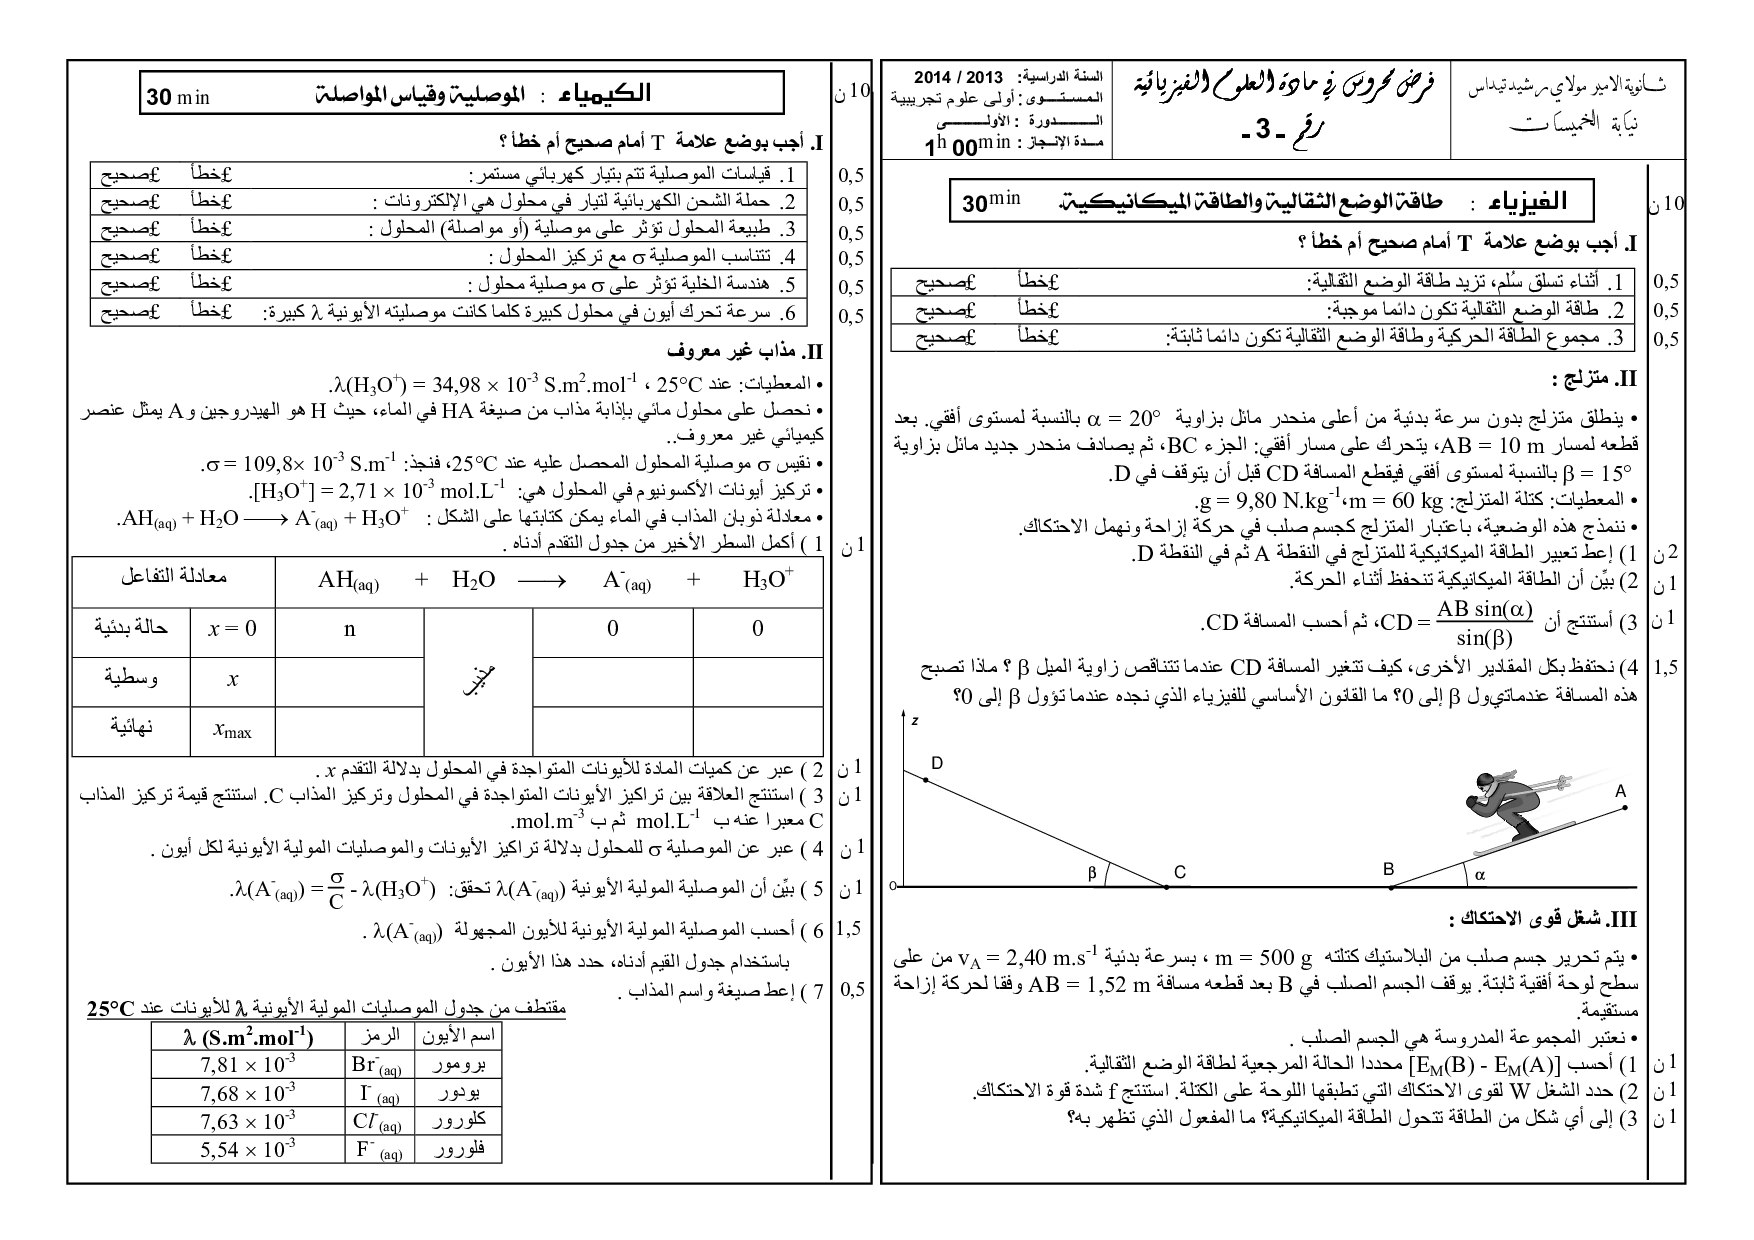 ثانوية الامير مولاي رشيد تيداس
نيابة الخميسات
فرض محروس في مادة العلوم الفيزيائية
رقم - 3 -
السنة الدراسية: 2013 / 2014
المستوى : أولى علوم تجريبية
الدورة : الأولى
مدة الإنجاز : 1h 00min
10 ن
الفيزياء : طاقة الوضع الثقالية والطاقة الميكانيكية. 30min
I. أجب بوضع علامة T أمام صحيح أم خطأ ؟
0,5 1. أثناء تسلق سُلم، تزيد طاقة الوضع الثقالية: £خطأ £صحيح
0,5 2. طاقة الوضع الثقالية تكون دائما موجبة: £خطأ £صحيح
0,5 3. مجموع الطاقة الحركية وطاقة الوضع الثقالية تكون دائما ثابتة: £خطأ £صحيح
II. متزلج :
• ينطلق متزلج بدون سرعة بدئية من أعلى منحدر مائل بزاوية α = 20° بالنسبة لمستوى أفقي. بعد
قطعه لمسار AB = 10 m، يتحرك على مسار أفقي: الجزء BC، ثم يصادف منحدر جديد مائل بزاوية
β = 15° بالنسبة لمستوى أفقي فيقطع المسافة CD قبل أن يتوقف في D.
• المعطيات: كتلة المتزلج: m = 60 kg، g = 9,80 N.kg-1.
• ننمذج هذه الوضعية، باعتبار المتزلج كجسم صلب في حركة إزاحة ونهمل الاحتكاك.
2 ن 1) إعط تعبير الطاقة الميكانيكية للمتزلج في النقطة A ثم في النقطة D.
1 ن 2) بيِّن أن الطاقة الميكانيكية تنحفظ أثناء الحركة.
1 ن 3) أستنتج أن CD = AB sin(α) / sin(β)، ثم أحسب المسافة CD.
1,5 4) نحتفظ بكل المقادير الأخرى، كيف تتغير المسافة CD عندما تتناقص زاوية الميل β ؟ ماذا تصبح
هذه المسافة عندماتيول β إلى 0؟ ما القانون الأساسي للفيزياء الذي نجده عندما تؤول β إلى 0؟
z
D
A
β
C
B
α
O
III. شغل قوى الاحتكاك :
• يتم تحرير جسم صلب من البلاستيك كتلته m = 500 g ، بسرعة بدئية vA = 2,40 m.s-1 من على
سطح لوحة أفقية ثابتة. يوقف الجسم الصلب في B بعد قطعه مسافة AB = 1,52 m وفقا لحركة إزاحة
مستقيمة.
• نعتبر المجموعة المدروسة هي الجسم الصلب .
1 ن 1) أحسب [EM(B) - EM(A)] محددا الحالة المرجعية لطاقة الوضع الثقالية.
1 ن 2) حدد الشغل W لقوى الاحتكاك التي تطبقها اللوحة على الكتلة. استنتج f شدة قوة الاحتكاك.
1 ن 3) إلى أي شكل من الطاقة تتحول الطاقة الميكانيكية؟ ما المفعول الذي تظهر به؟
10 ن
الكيمياء : الموصلية وقياس المواصلة 30 min
I. أجب بوضع علامة T أمام صحيح أم خطأ ؟
0,5 1. قياسات الموصلية تتم بتيار كهربائي مستمر: £خطأ £صحيح
0,5 2. حملة الشحن الكهربائية لتيار في محلول هي الإلكترونات : £خطأ £صحيح
0,5 3. طبيعة المحلول تؤثر على موصلية (أو مواصلة) المحلول : £خطأ £صحيح
0,5 4. تتناسب الموصلية σ مع تركيز المحلول : £خطأ £صحيح
0,5 5. هندسة الخلية تؤثر على σ موصلية محلول : £خطأ £صحيح
0,5 6. سرعة تحرك أيون في محلول كبيرة كلما كانت موصليته الأيونية λ كبيرة: £خطأ £صحيح
II. مذاب غير معروف
• المعطيات: عند 25°C ، λ(H3O+) = 34,98 × 10-3 S.m2.mol-1.
• نحصل على محلول مائي بإذابة مذاب من صيغة HA في الماء، حيث H هو الهيدروجين و A يمثل عنصر
كيميائي غير معروف..
• نقيس σ موصلية المحلول المحصل عليه عند 25°C، فنجذ: σ = 109,8× 10-3 S.m-1.
• تركيز أيونات الأكسونيوم في المحلول هي: [H3O+] = 2,71 × 10-3 mol.L-1.
• معادلة ذوبان المذاب في الماء يمكن كتابتها على الشكل : AH(aq) + H2O ⟶ A-(aq) + H3O+.
1 ن 1 ) أكمل السطر الأخير من جدول التقدم أدناه .
معادلة التفاعل AH(aq) + H2O ⟶ A-(aq) + H3O+
حالة بدئية x = 0 n مذيب 0 0
وسطية x
نهائية xmax
1 ن 2 ) عبر عن كميات المادة للأيونات المتواجدة في المحلول بدلالة التقدم x .
1 ن 3 ) استنتج العلاقة بين تراكيز الأيونات المتواجدة في المحلول وتركيز المذاب C. استنتج قيمة تركيز المذاب
C معبرا عنه ب mol.L-1 ثم ب mol.m-3.
1 ن 4 ) عبر عن الموصلية σ للمحلول بدلالة تراكيز الأيونات والموصليات المولية الأيونية لكل أيون .
1 ن 5 ) بيِّن أن الموصلية المولية الأيونية λ(A-(aq)) تحقق: λ(A-(aq)) = σ/C - λ(H3O+).
1,5 6 ) أحسب الموصلية المولية الأيونية للأيون المجهولة λ(A-(aq)) .
باستخدام جدول القيم أدناه، حدد هذا الأيون .
0,5 7 ) إعط صيغة واسم المذاب .
مقتطف من جدول الموصليات المولية الأيونية λ للأيونات عند 25°C
اسم الأيون الرمز λ (S.m2.mol-1)
برومور Br-(aq) 7,81 × 10-3
يودور I-(aq) 7,68 × 10-3
كلورور Cl-(aq) 7,63 × 10-3
فلورور F-(aq) 5,54 × 10-3